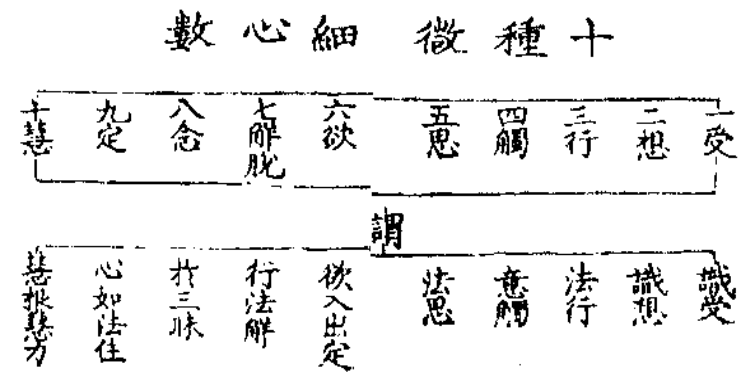 十種微細心數
一受
二想
三行
四觸
五思
六欲
七解脫
八念
九定
十慧
謂
識受
識想
法行
意觸
法思
欲入出定
行法解
於三昧
心如法住
慧根慧力